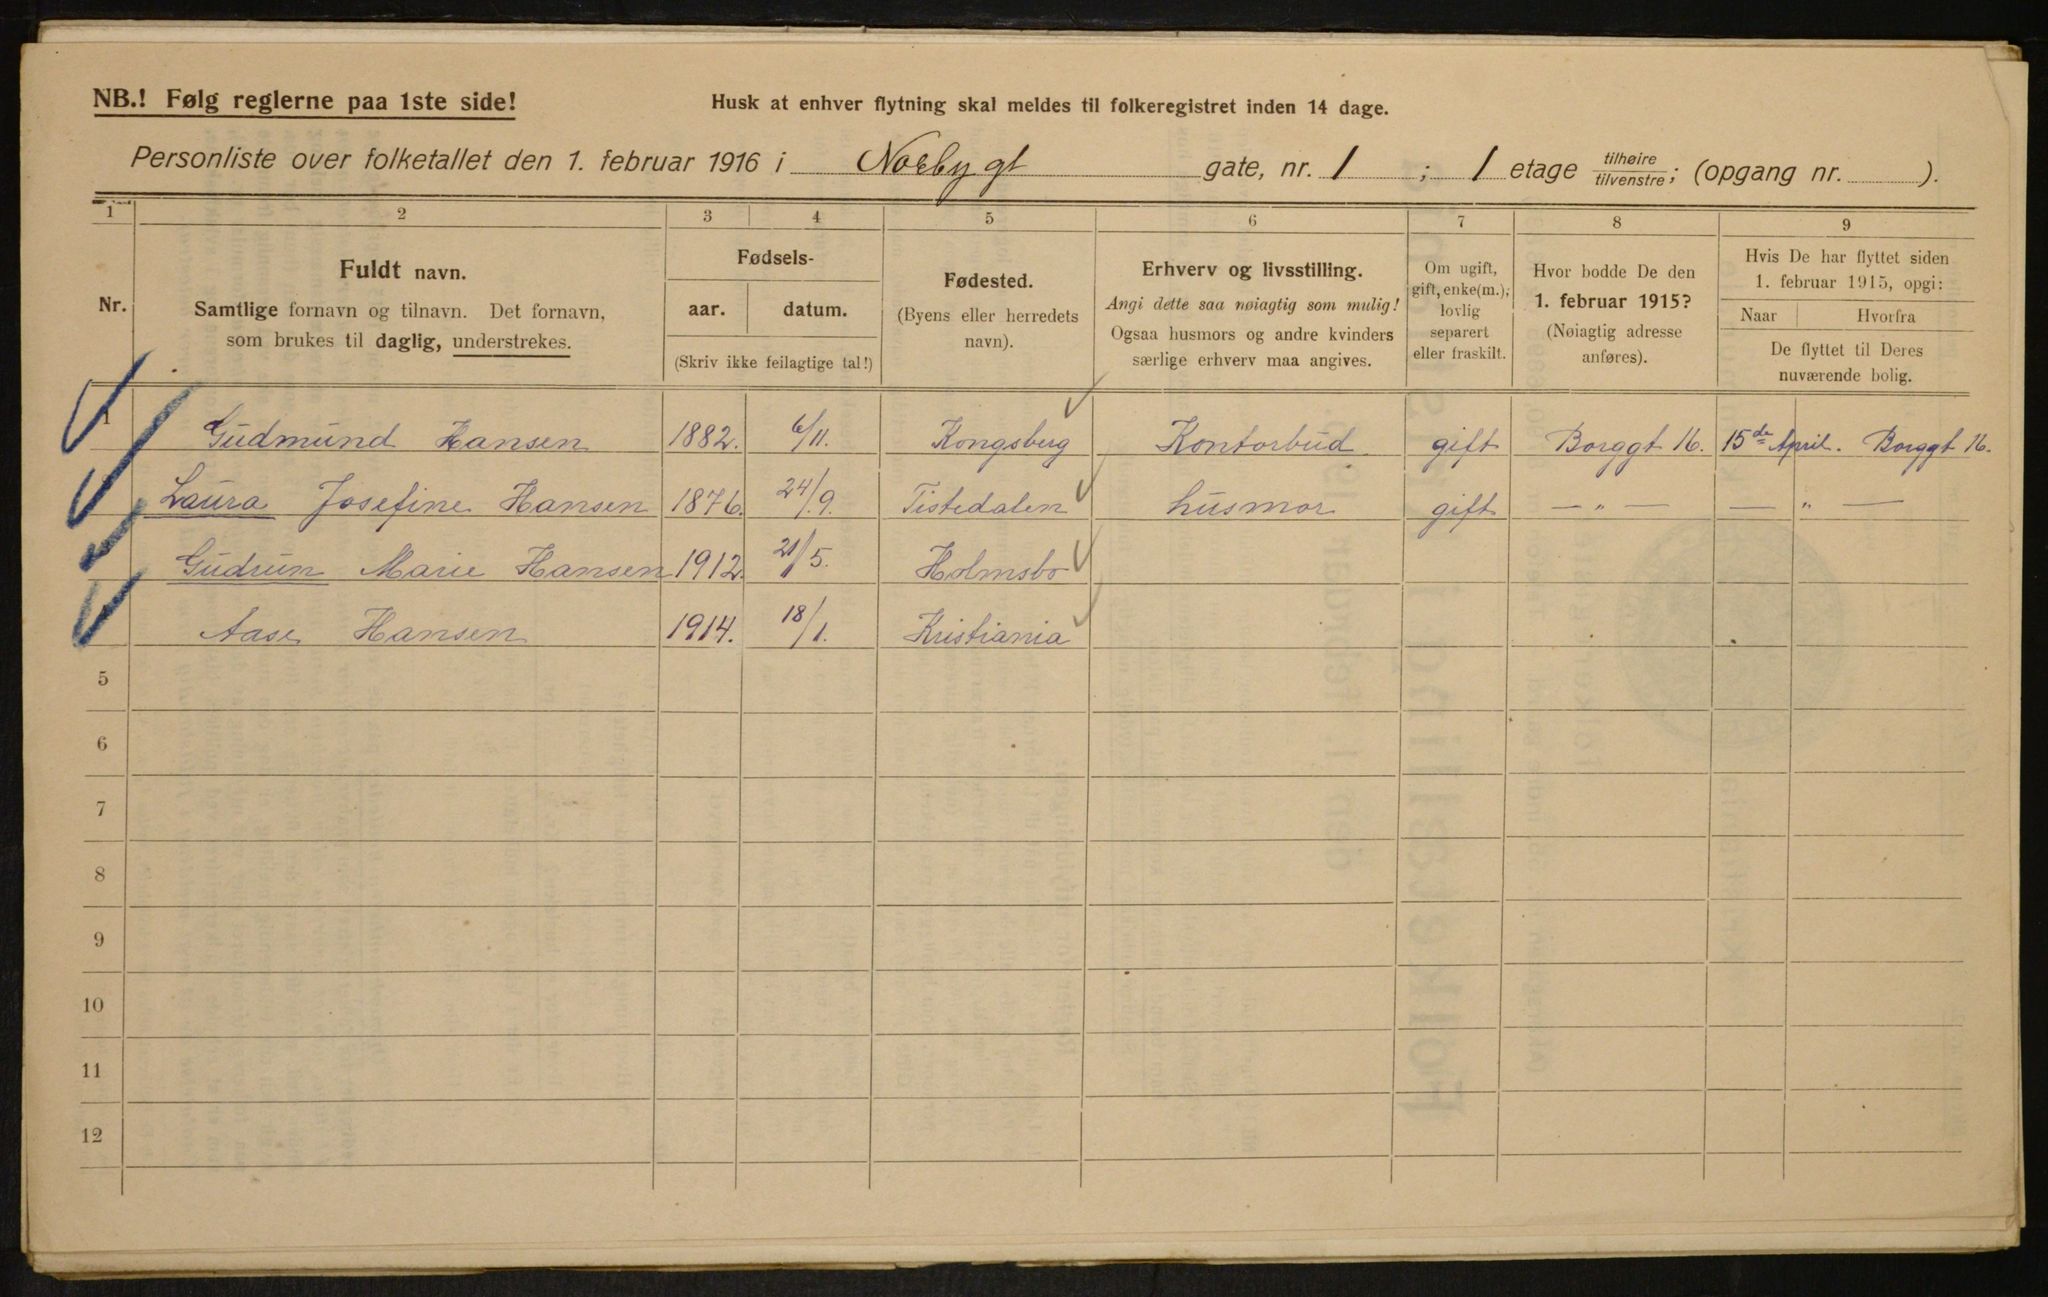 NB.! Følg reglerne paa 1ste side!
Husk at enhver flytning skal meldes til folkeregistret inden 14 dage.
Personliste over folketallet den 1. februar 1916 i Norbygt gate, nr. 1 ; 1 etage tilhøire/tilvenstre; (opgang nr. ).
1 2 3 4 5 6 7 8 9
Nr.
Fuldt navn.
Samtlige fornavn og tilnavn. Det fornavn,
som brukes til daglig, understrekes.
Fødsels-
aar. datum.
(Skriv ikke feilagtige tal!)
Fødested.
(Byens eller herredets
navn).
Erhverv og livsstilling.
Angi dette saa nøiagtig som mulig!
Ogsaa husmors og andre kvinders
særlige erhverv maa angives.
Om ugift,
gift, enke(m.),
lovlig
separert
eller fraskilt.
Hvor bodde De den
1. februar 1915?
(Nøiagtig adresse
anføres).
Hvis De har flyttet siden
1. februar 1915, opgi:
Naar Hvorfra
De flyttet til Deres
nuværende bolig.
1 Gudmund Hansen 1882. 6/11. Kongsberg Kontorbud gift Borggt 16. 15de April. Borggt 16.
Laura Josefine Hansen 1876. 24/9. Tistedalen husmor gift — " — — " —
Gudrun Marie Hansen 1912. 21/5. Holmsbo
Aase Hansen 1914. 18/1. Kristiania
5
6
7
8
9
10
11
12